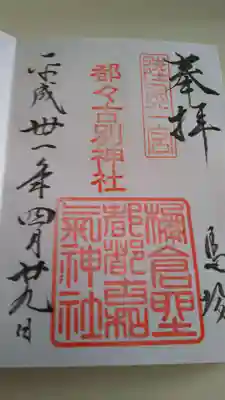 奉拝
馬場
陸奥一宮
都々古別神社
棚倉野
都都古和
氣神社
平成卅一年四月廿九日